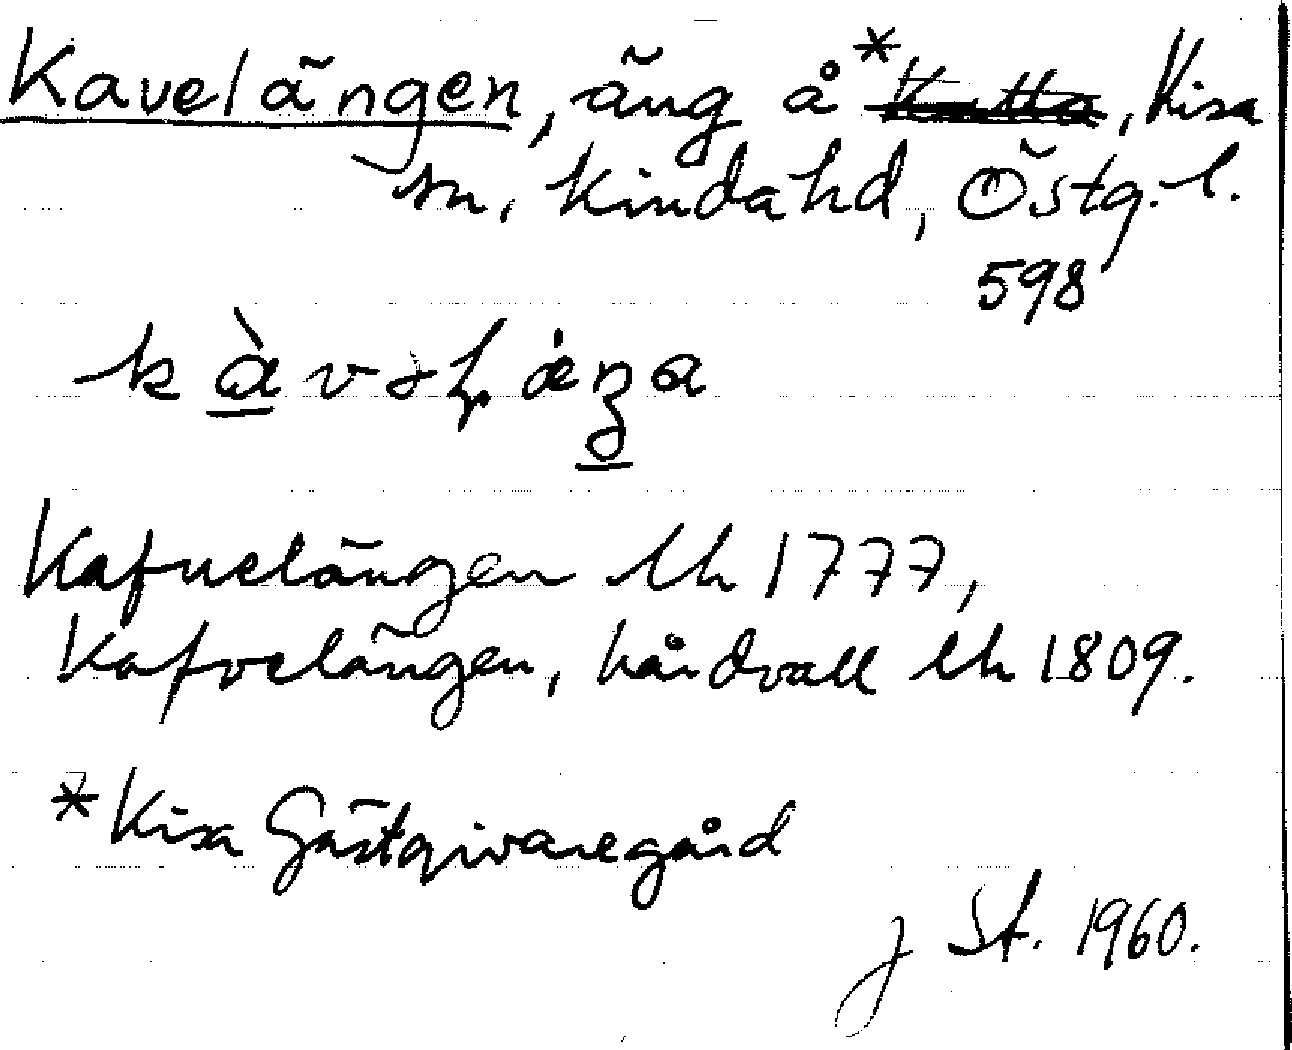 Kavelängen, äng å *, Kisa
sn, Kinda hd, Östg. l.
598
Kafuelängen lh 1777,
Kafvelängen, hårdvall lh 1809.
* Kisa Gästgivaregård
J St. 1960.